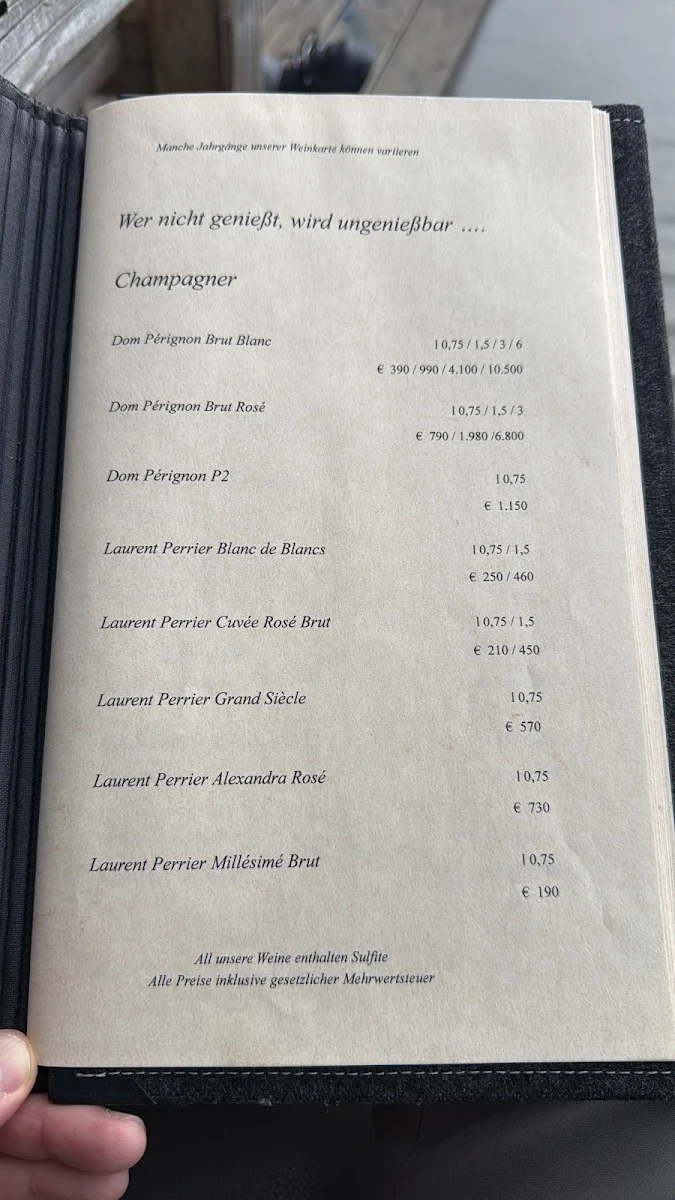 Manche Jahrgänge unserer Weinkarte können variieren
Wer nicht genießt, wird ungenießbar ....
Champagner
Dom Pérignon Brut Blanc l 0,75 / 1,5 / 3 / 6
€ 390 / 990 / 4.100 / 10.500
Dom Pérignon Brut Rosé l 0,75 / 1,5 / 3
€ 790 / 1.980 /6.800
Dom Pérignon P2 l 0,75
€ 1.150
Laurent Perrier Blanc de Blancs l 0,75 / 1,5
€ 250 / 460
Laurent Perrier Cuvée Rosé Brut l 0,75 / 1,5
€ 210 / 450
Laurent Perrier Grand Siècle l 0,75
€ 570
Laurent Perrier Alexandra Rosé l 0,75
€ 730
Laurent Perrier Millésimé Brut l 0,75
€ 190
All unsere Weine enthalten Sulfite
Alle Preise inklusive gesetzlicher Mehrwertsteuer